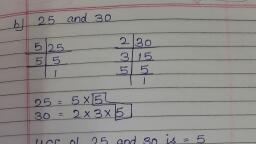 b) 25 and 30
5 | 25
5 | 5
1
2 | 30
3 | 15
5 | 5
1
25 = 5 × 5
30 = 2 × 3 × 5
of 25 and 30 is = 5